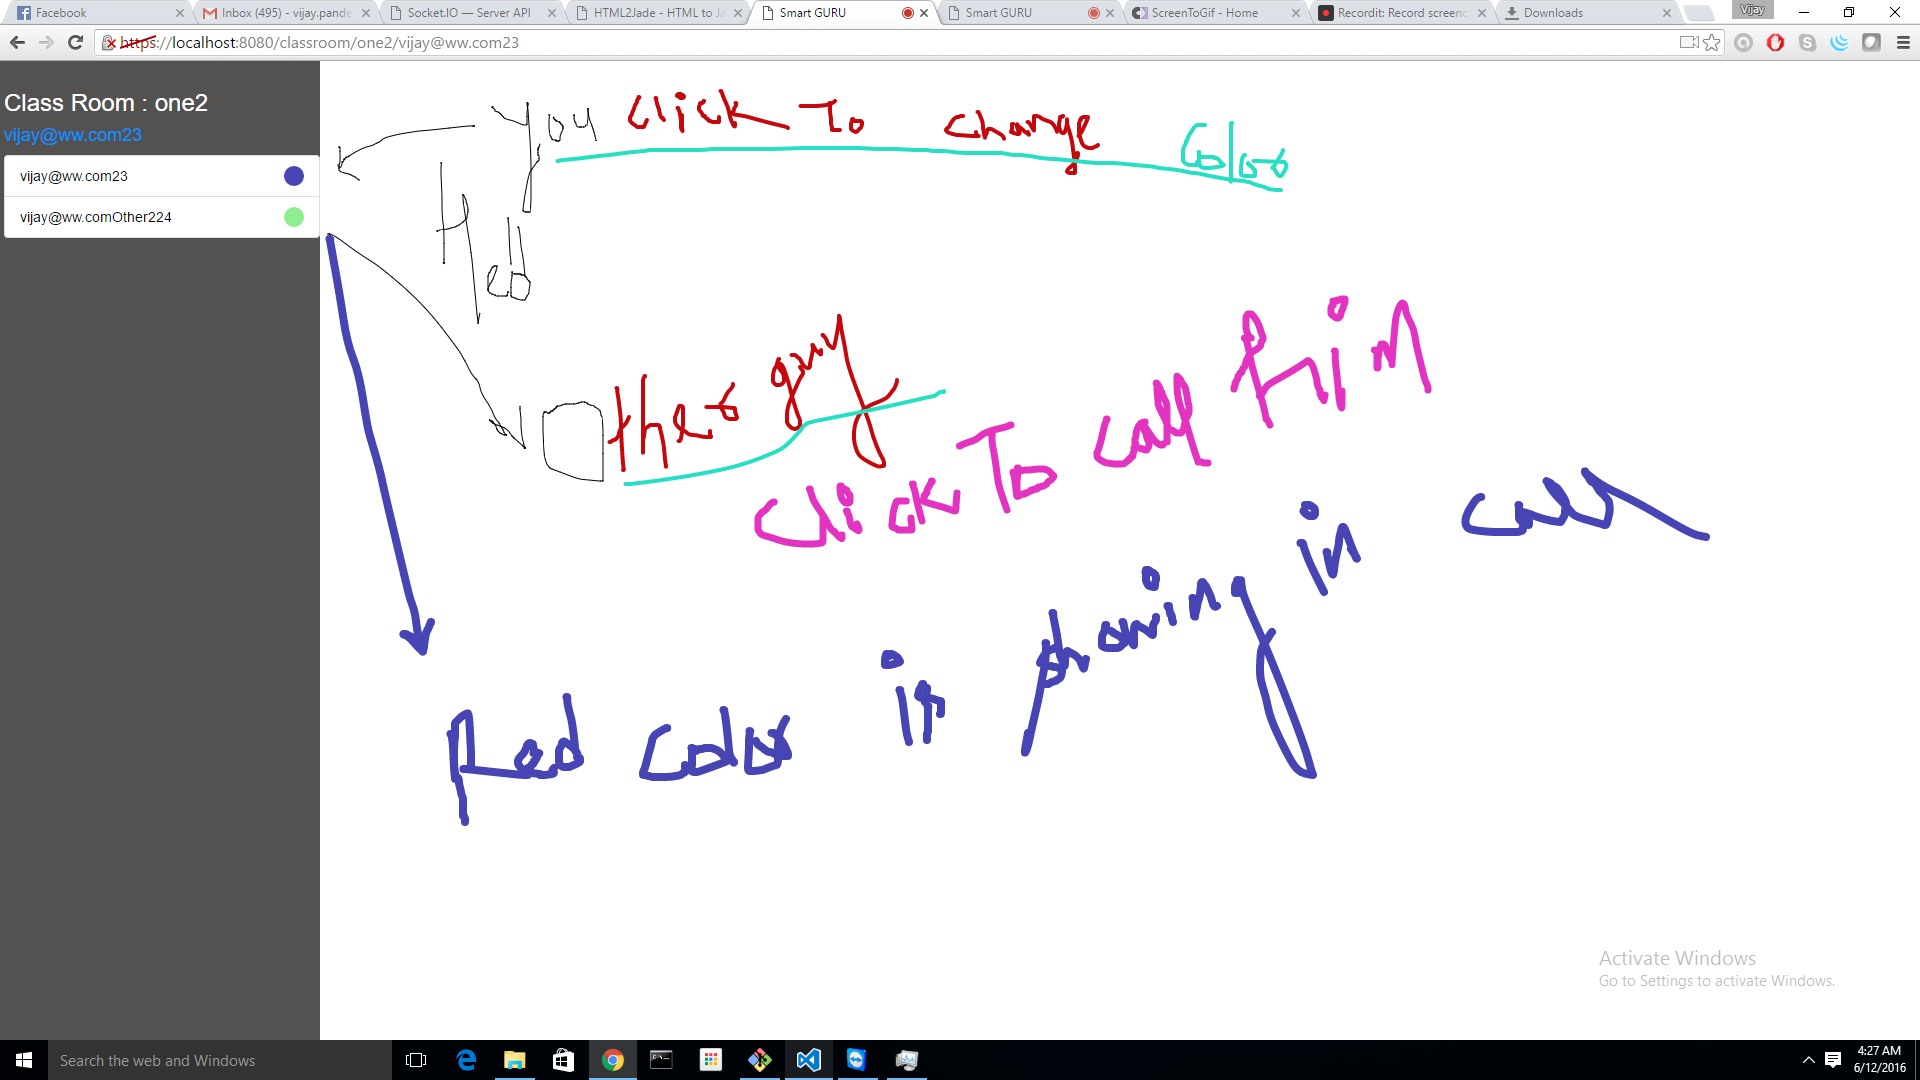 Facebook
Inbox (495) - vijay.pande
Socket.IO — Server API
HTML2Jade - HTML to Ja
Smart GURU
Smart GURU
ScreenToGif - Home
Recordit: Record screenc
Downloads
Vijay
https://localhost:8080/classroom/one2/vijay@ww.com23
Class Room : one2
vijay@ww.com23
vijay@ww.com23
vijay@ww.comOther224
You click To change Color
Other guy
Click To call him
Red Color is showing in call
Activate Windows
Go to Settings to activate Windows.
Search the web and Windows
4:27 AM
6/12/2016